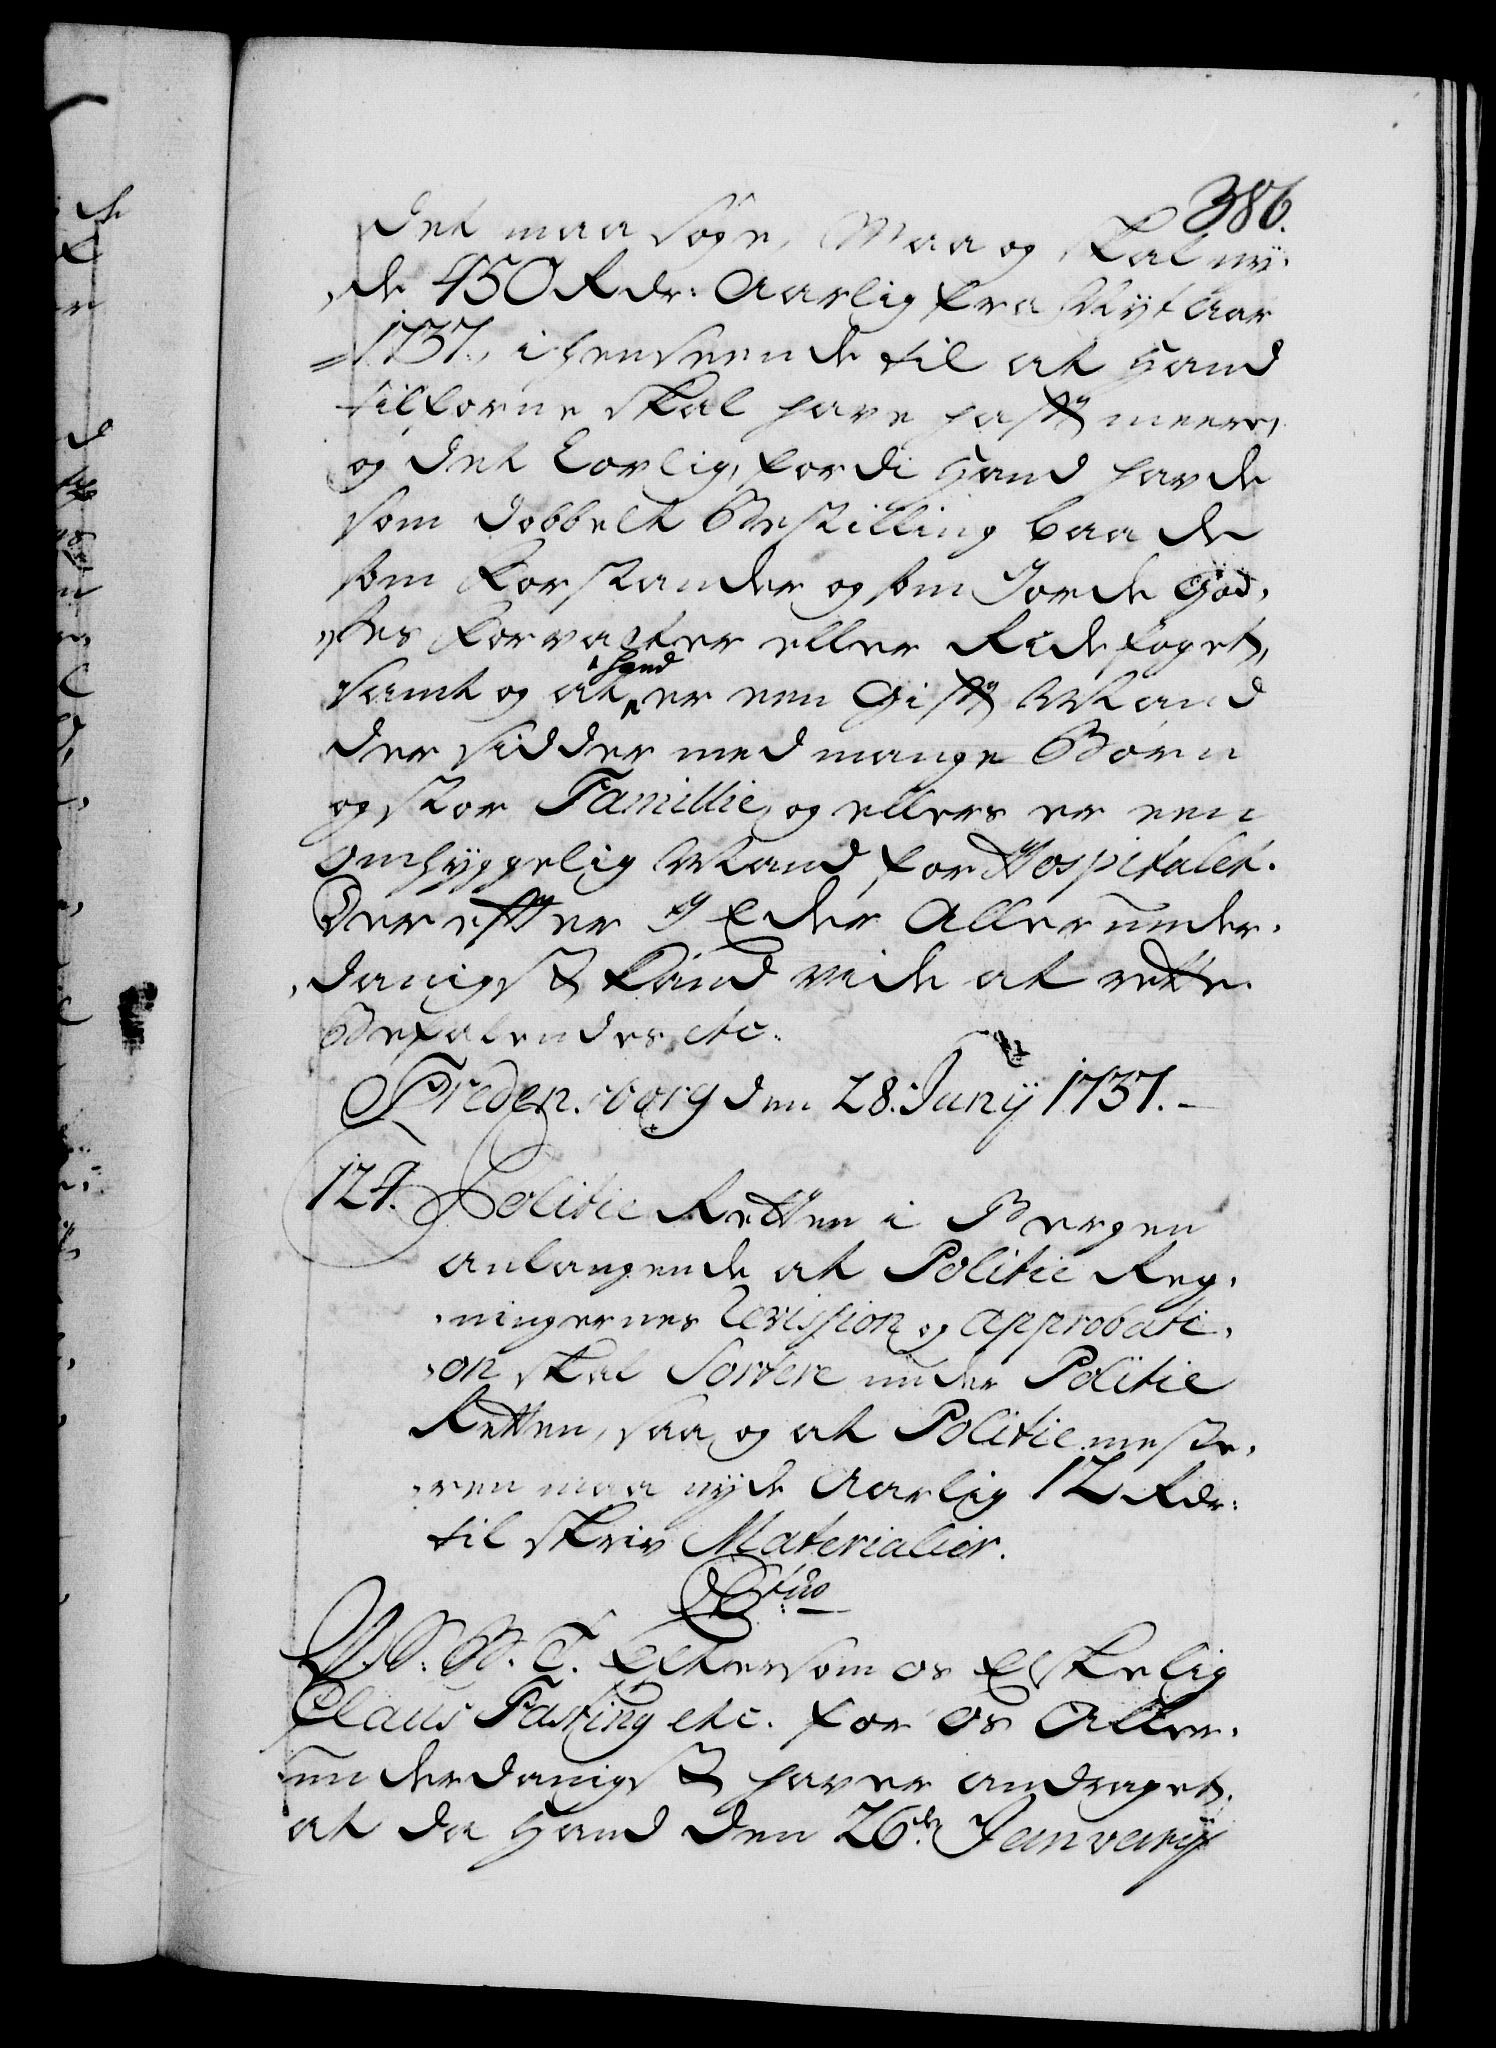 386.
det maa søge, Maa og skal ny-
de 450 Rdr: Aarlig fra Nyt Aar
1737., i henseende til at hand
tilforne skal have hafft meere,
og det Lovlig, fordi hand havde
som dobbelt Bestilling baade
som Forstander og som Jorde God-
ses Forvalter eller Ridefoget,
samt og at hand er een Gifft Mand
der sidder med mange Børn
og stor Famillie, og ellers er een
omhyggelig Mand for Hospitalet.
Derefter I Eder Allerunder-
danigst kand vide at rette.
Befalendes etc.
Fredensborg den 28. Juny 1737.
124. Politie Retten i Bergen
anlangende at Politie Reg-
ningernes Revission og approbati-
on skal Sortere under Politie
Retten, saa og at Politiemeste-
ren maa nyde Aarlig 12 Rdr:
til skriv Materialier.
C. S. B. T. Eftersom os Elskelig
Claus Fasting etc. for os Aller-
underdanigst haver andraget,
at da hand den 26de Janvary